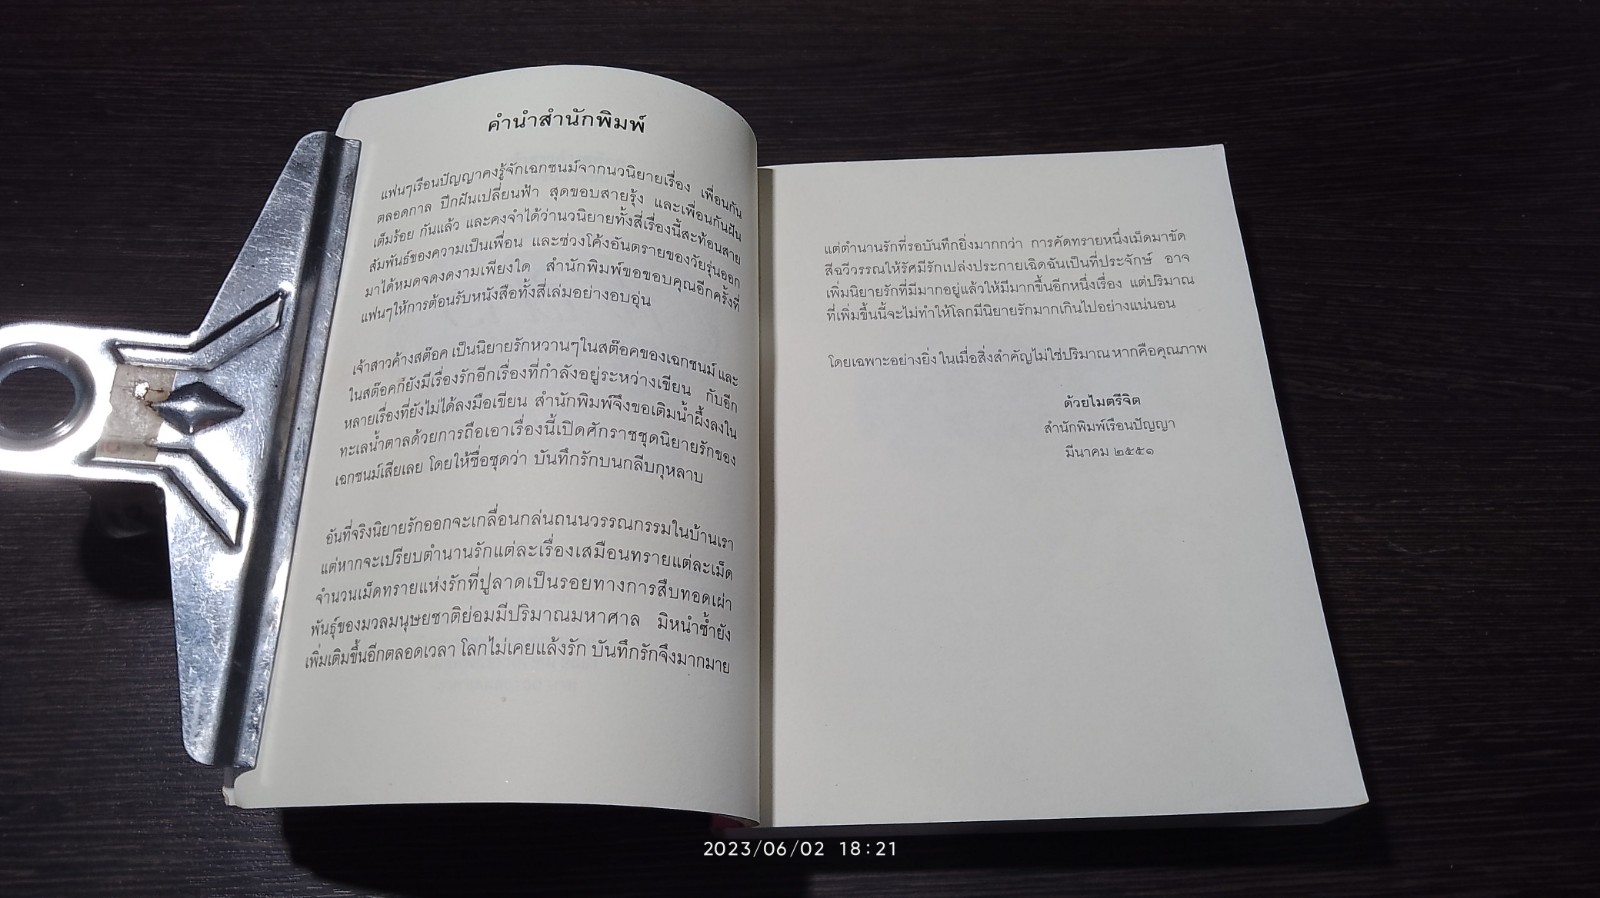 คำนำสำนักพิมพ์
แฟนๆเรือนปัญญาคงรู้จักเฉกชนม์จากนวนิยายเรื่อง เพื่อนกัน
ตลอดกาล ปีกฝันเปลี่ยนฟ้า สุดขอบสายรุ้ง และเพื่อนกันฝัน
เต็มร้อย กันแล้ว และคงจำได้ว่านวนิยายทั้งสี่เรื่องนี้สะท้อนสาย
สัมพันธ์ของความเป็นเพื่อน และช่วงโค้งอันตรายของวัยรุ่นออก
มาได้หมดจดงดงามเพียงใด สำนักพิมพ์ขอขอบคุณอีกครั้งที่
แฟนๆให้การต้อนรับหนังสือทั้งสี่เล่มอย่างอบอุ่น
เจ้าสาวค้างสต๊อค เป็นนิยายรักหวานๆในสต๊อคของเฉกชนม์ และ
ในสต๊อคก็ยังมีเรื่องรักอีกเรื่องที่กำลังอยู่ระหว่างเขียน กับอีก
หลายเรื่องที่ยังไม่ได้ลงมือเขียน สำนักพิมพ์จึงขอเติมน้ำผึ้งลงใน
ทะเลน้ำตาลด้วยการถือเอาเรื่องนี้เปิดศักราชชุดนิยายรักของ
เฉกชนม์เสียเลย โดยให้ชื่อชุดว่า บันทึกรักบนกลีบกุหลาบ
อันที่จริงนิยายรักออกจะเกลื่อนกล่นถนนวรรณกรรมในบ้านเรา
แต่หากจะเปรียบตำนานรักแต่ละเรื่องเสมือนทรายแต่ละเม็ด
จำนวนเม็ดทรายแห่งรักที่ปูลาดเป็นรอยทางการสืบทอดเผ่า
พันธุ์ของมวลมนุษยชาติย่อมมีปริมาณมหาศาล มิหนำซ้ำยัง
เพิ่มเติมขึ้นอีกตลอดเวลา โลกไม่เคยแล้งรัก บันทึกรักจึงมากมาย
แต่ตำนานรักที่รอบันทึกยิ่งมากกว่า การคัดทรายหนึ่งเม็ดมาขัด
สีฉวีวรรณให้รัศมีรักเปล่งประกายเฉิดฉันเป็นที่ประจักษ์ อาจ
เพิ่มนิยายรักที่มีมากอยู่แล้วให้มีมากขึ้นอีกหนึ่งเรื่อง แต่ปริมาณ
ที่เพิ่มขึ้นนี้จะไม่ทำให้โลกมีนิยายรักมากเกินไปอย่างแน่นอน
โดยเฉพาะอย่างยิ่ง ในเมื่อสิ่งสำคัญไม่ใช่ปริมาณ หากคือคุณภาพ
ด้วยไมตรีจิต
สำนักพิมพ์เรือนปัญญา
มีนาคม ๒๕๕๑
2023/06/02 18:21